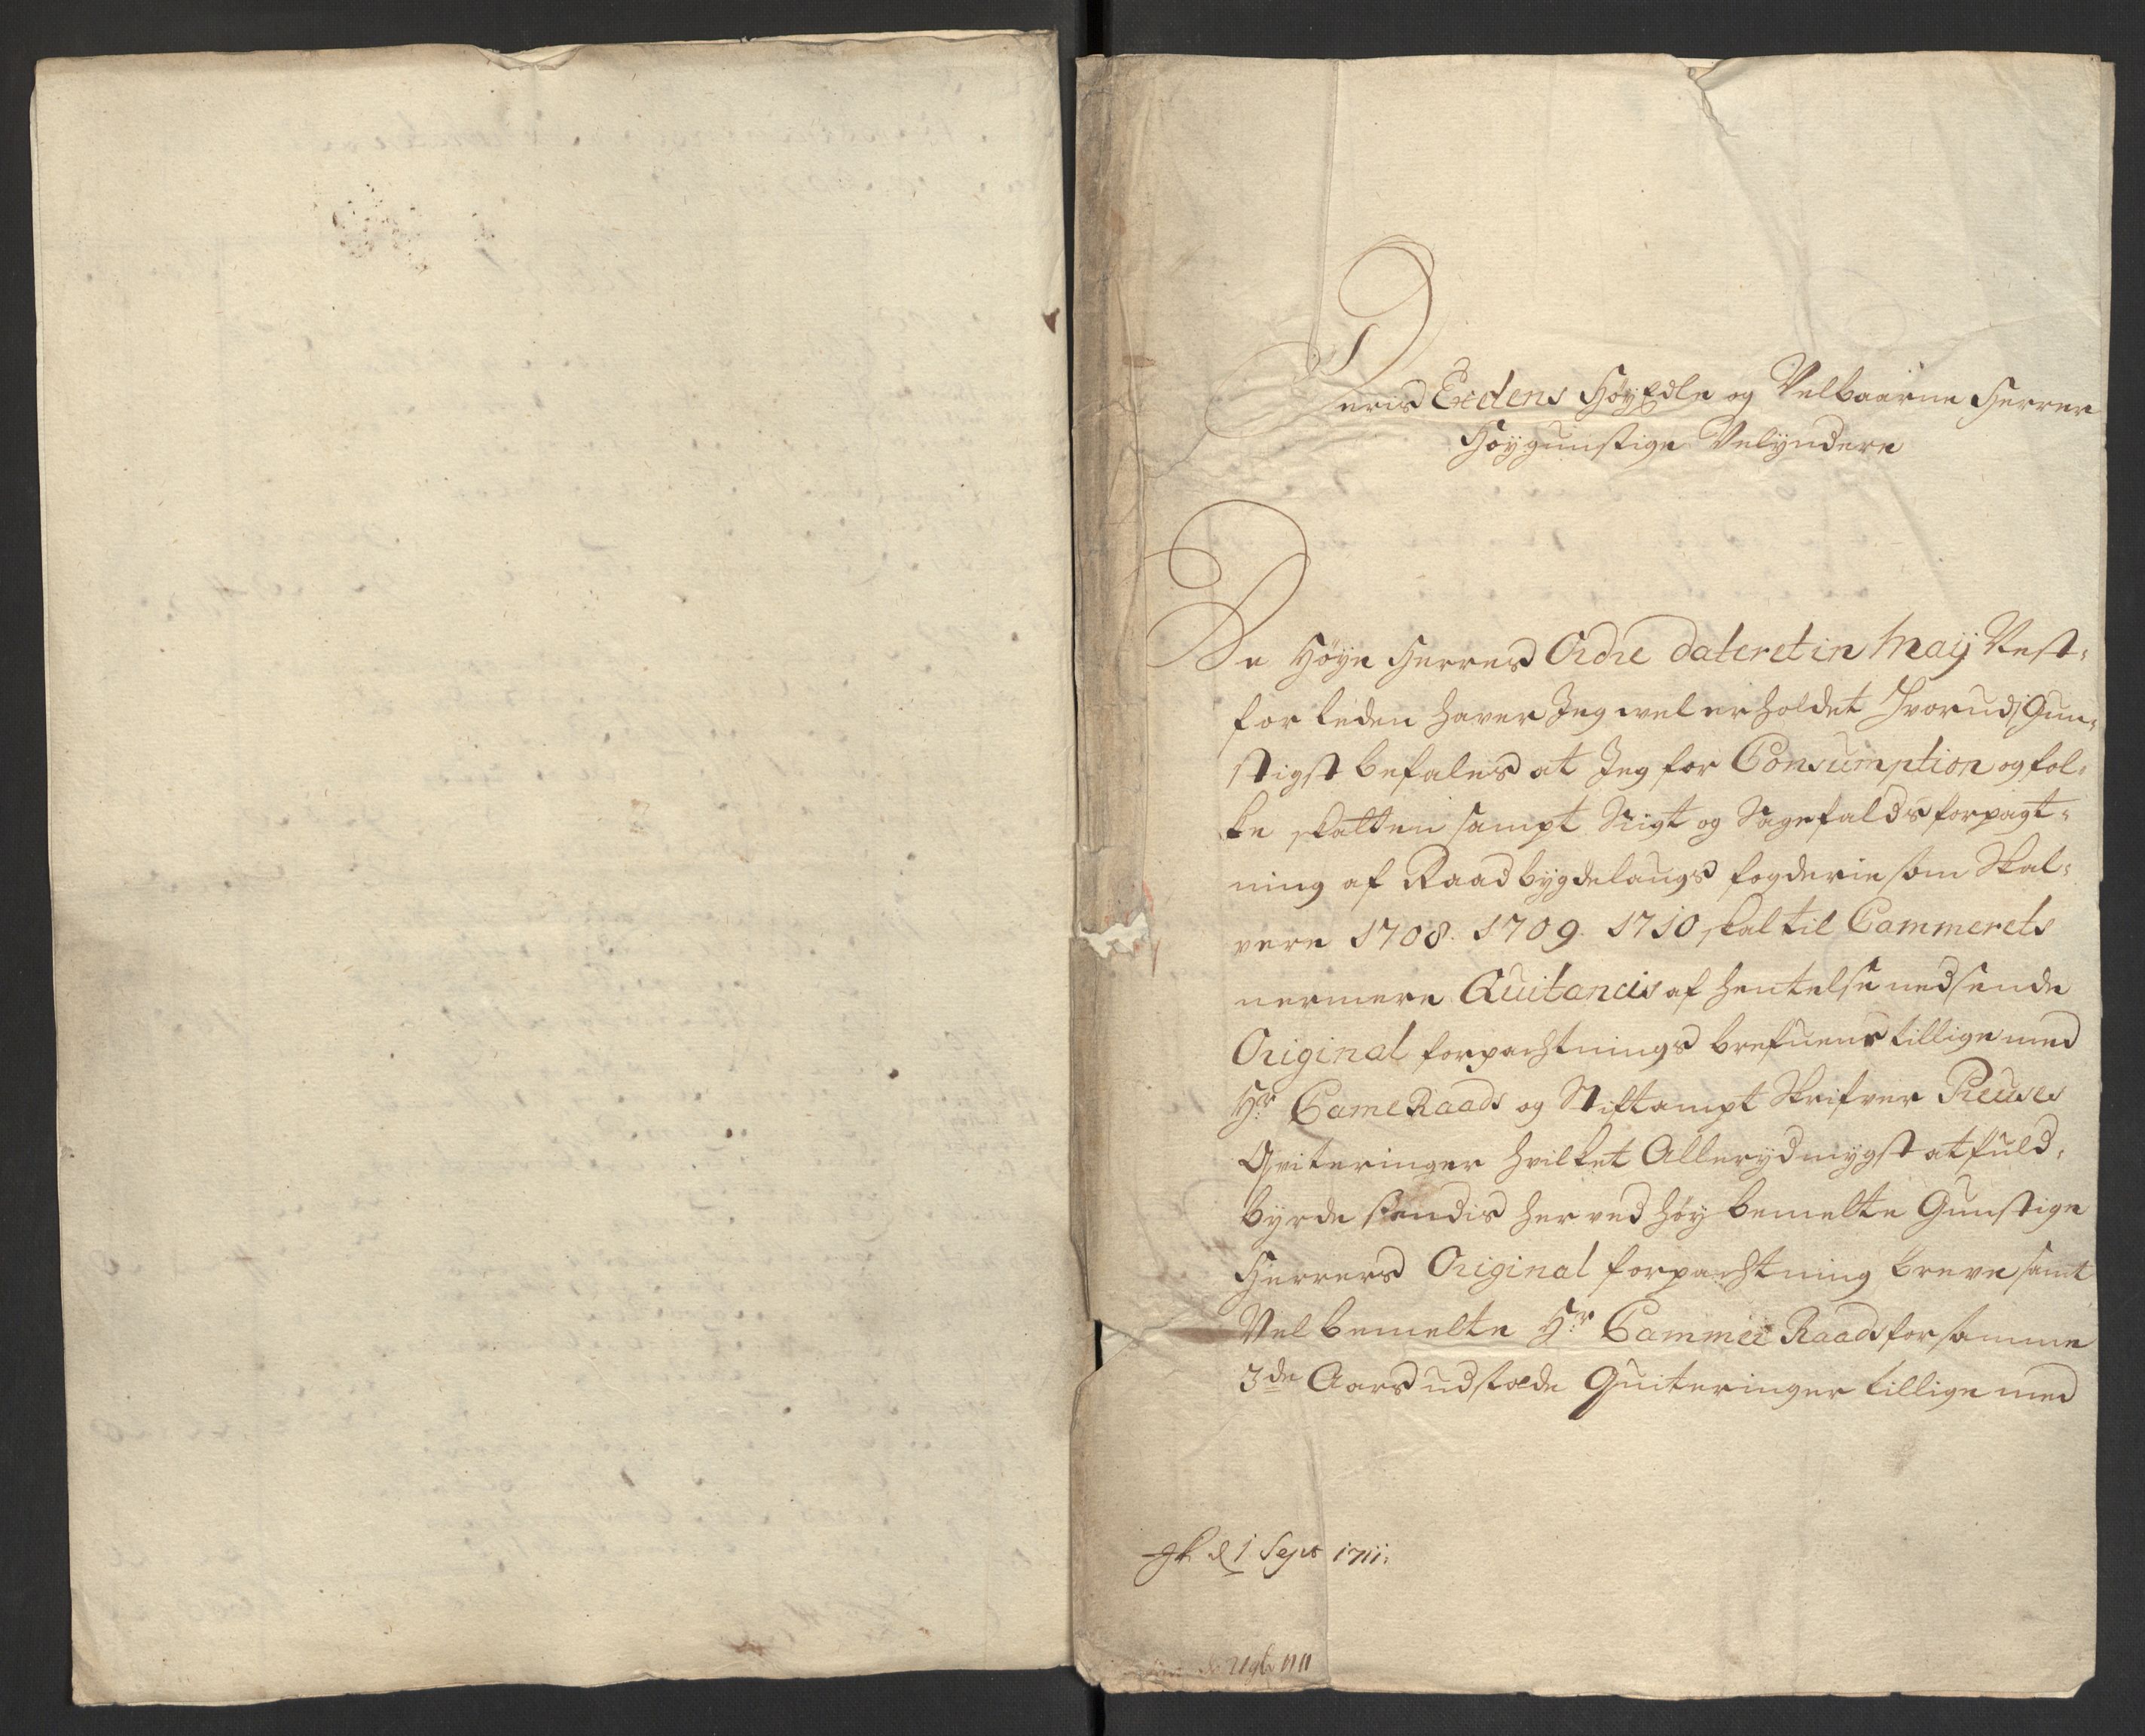 Deris Exelens HøyEdle og Velbaarne Herrer
Høygunstige Velyndere
De Høye Herrers Ordre dateret in Maij Nest-
forleden haver Jeg vel erholdet Hvorudj Gun-
stigst befales at Jeg for Consumption og fol-
ke skatten sampt Sigt og Sagefalds forpagt-
ning af Raadbygdelaugs fogderie som
vere 1708. 1709. 1710 skal til Cammerets
nermere Quitancis af hentelse nedsende
Original forpachtnings brefuene tillige med
Hr CameRaads og Stiftampt Skrifver
Qviteringer hvilket Allerydmygst at fuld-
byrde sendis her ved høy bemelte Gunstige
Herrers Original forpachtning breve samt
Velbemelte Hr Cammer Raads for samme
3de Aars udstæde Quiteringer tillige med
d 1 Sept 1711.
1711